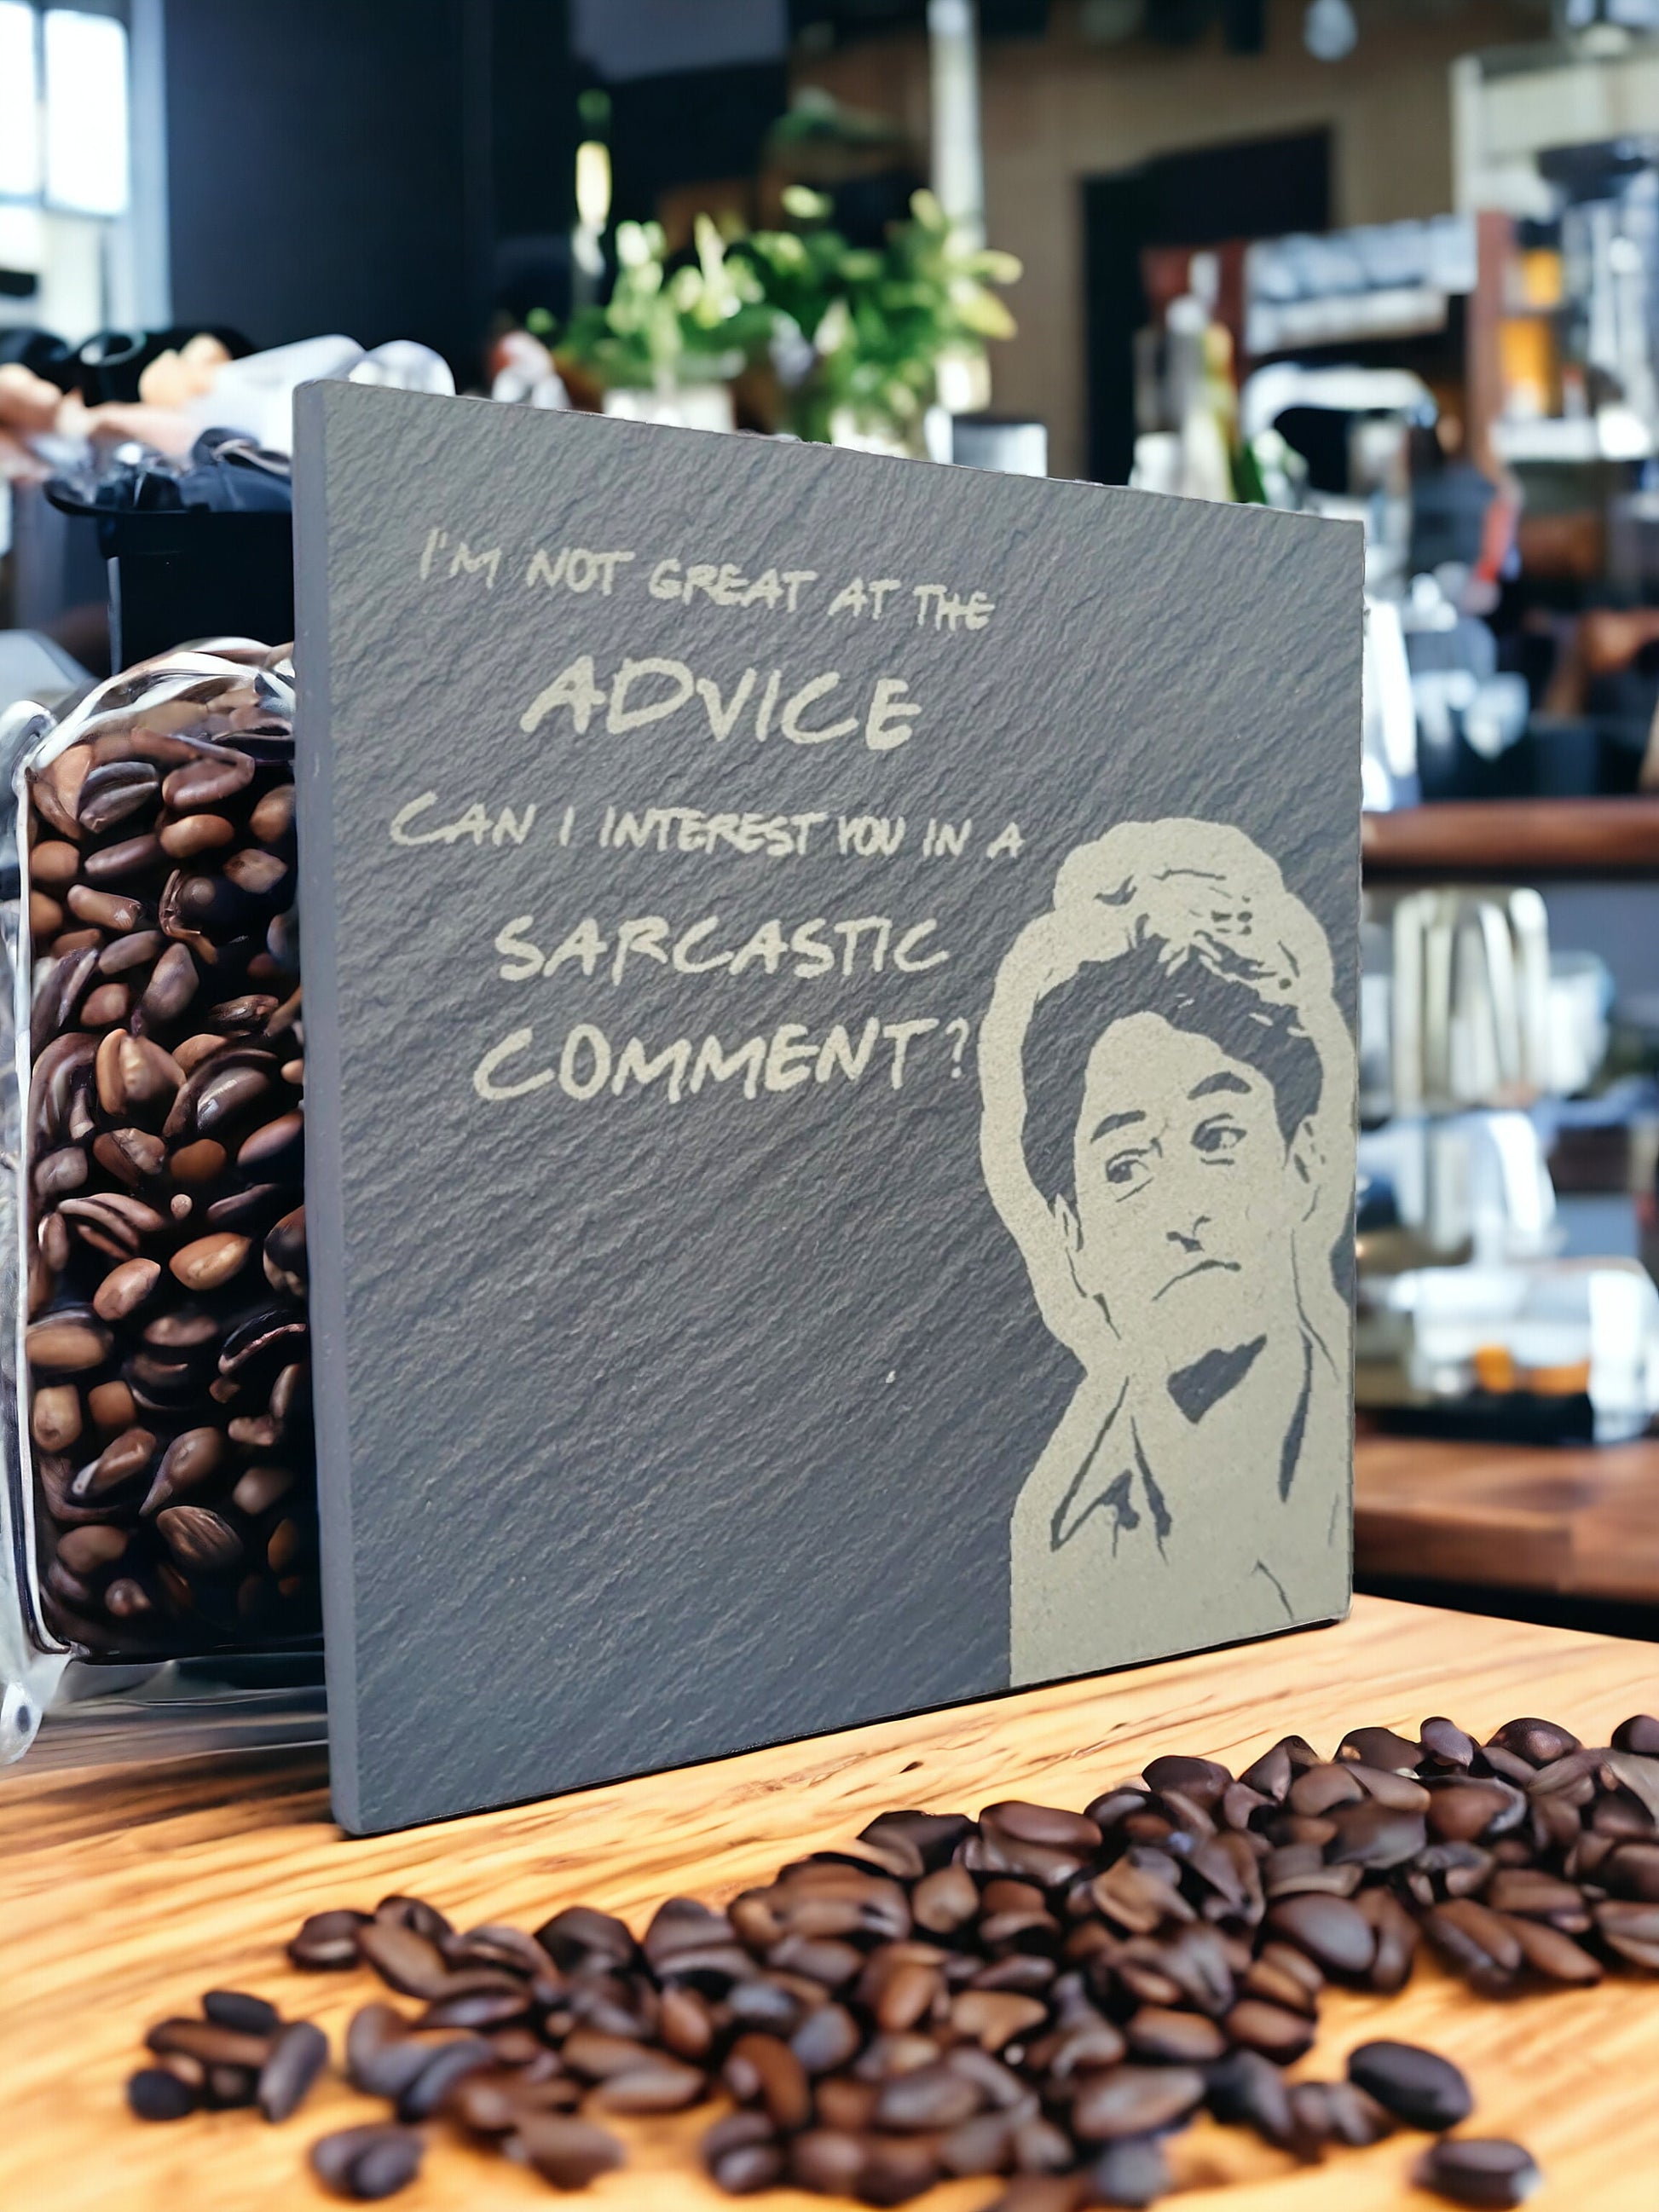 I'M NOT GREAT AT THE
ADVICE
CAN I INTEREST YOU IN A
SARCASTIC
COMMENT?